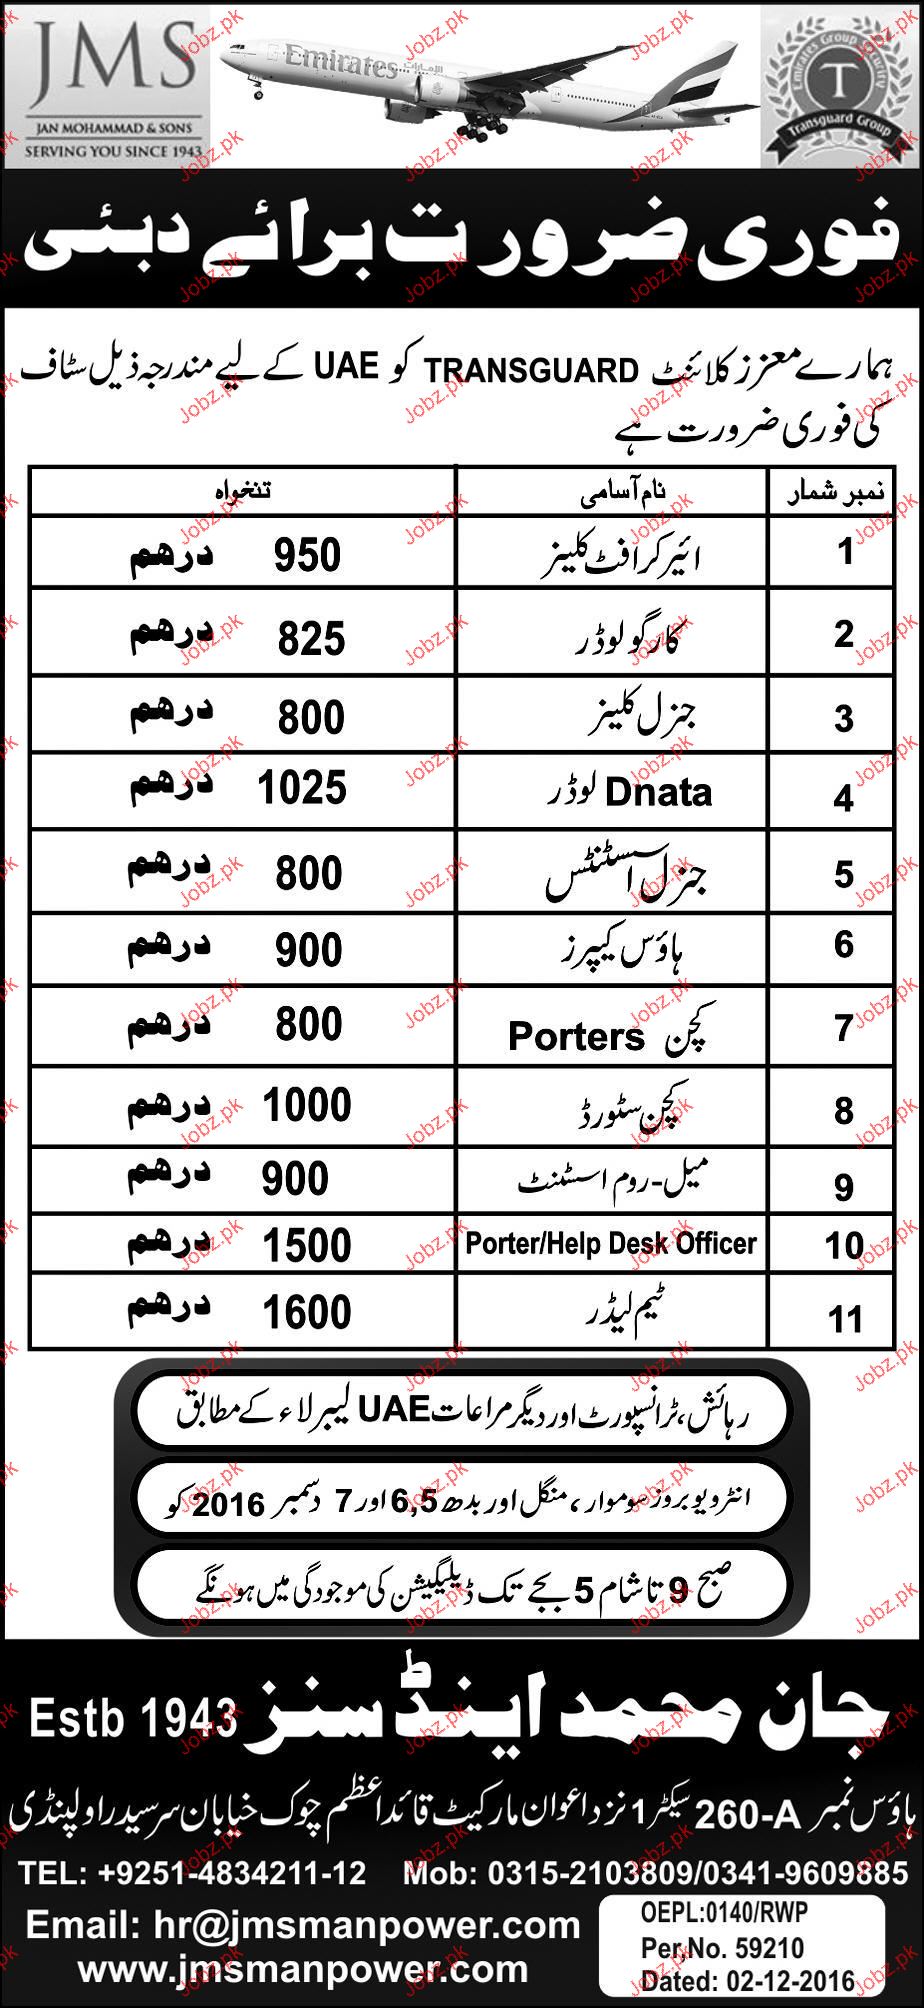 JMS
JAN MOHAMMAD & SONS
SERVING YOU SINCE 1943
Emirates الإمارات
Emirates Group Security
T
Transguard Group
فوری ضرورت برائے دبئی
ہمارے معزز کلائنٹ TRANSGUARD کو UAE کے لیے مندرجہ ذیل سٹاف
کی فوری ضرورت ہے
نمبر شمار نام آسامی تنخواہ
1 ائیر کرافٹ کلینر 950 درھم
2 کارگو لوڈر 825 درھم
3 جنرل کلینر 800 درھم
4 Dnata لوڈر 1025 درھم
5 جنرل اسسٹنٹس 800 درھم
6 ہاؤس کیپرز 900 درھم
7 کچن Porters 800 درھم
8 کچن سٹورڈ 1000 درھم
9 میل-روم اسسٹنٹ 900 درھم
10 Porter/Help Desk Officer 1500 درھم
11 ٹیم لیڈر 1600 درھم
رہائش، ٹرانسپورٹ اور دیگر مراعات UAE لیبر لاء کے مطابق
انٹرویو بروز سوموار، منگل اور بدھ 6,5 اور 7 دسمبر 2016 کو
صبح 9 تا شام 5 بجے تک ڈیلیگیشن کی موجودگی میں ہونگے
جان محمد اینڈ سنز Estb 1943
ہاؤس نمبر 260-A سیکٹر 1 نزد اعوان مارکیٹ قائداعظم چوک خیابان سرسید راولپنڈی
TEL: +9251-4834211-12 Mob: 0315-2103809/0341-9609885
Email: hr@jmsmanpower.com
www.jmsmanpower.com
OEPL:0140/RWP
Per,No. 59210
Dated: 02-12-2016
Jobz.pk